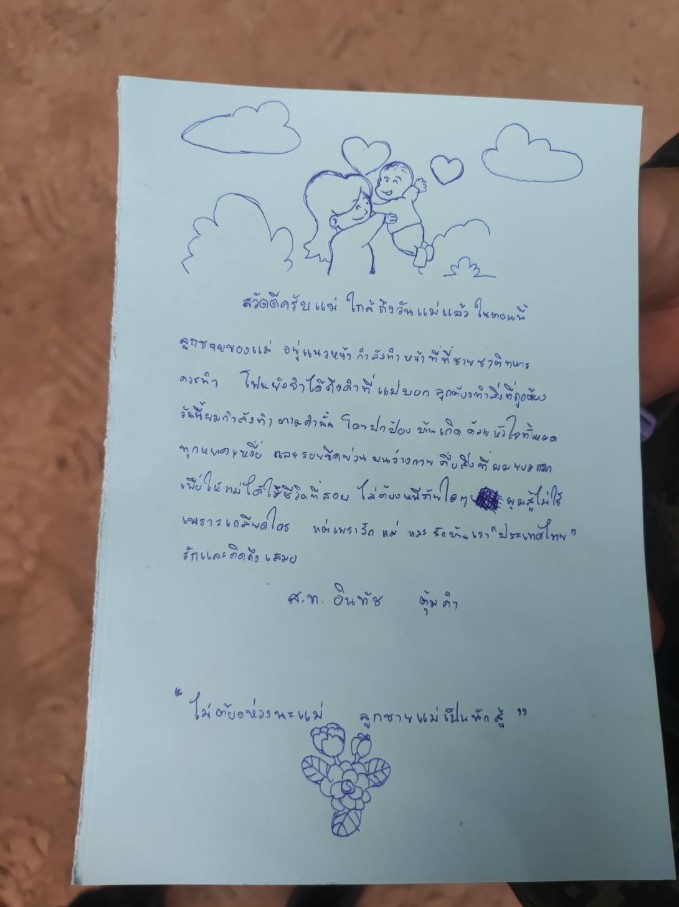 สวัสดีครับแม่ ใกล้ถึงวันแม่แล้ว ในตอนนี้
ลูกชายของแม่ อยู่แนวหน้า กำลังทำหน้าที่ที่ชายชาติทหาร
ควรทำ โฟนยังจำได้ถึงคำที่แม่บอก ลูกต้องทำสิ่งที่ถูกต้อง
วันนี้ผมกำลังทำ ตามคำนั้น โดยปกป้อง บ้านเกิด ด้วยหัวใจทั้งหมด
ทุกหยาดเหงื่อ และรอยขีดข่วน บนร่างกาย คือสิ่งที่ ผมยอมแลก
เพื่อให้แม่ได้ใช้ชีวิตที่สงบ ไม่ต้องหนีภัยใดๆ ผมสู้ไม่ใช่
เพราะเกลียดใคร แต่เพราะรักแม่ และรักบ้านเรา "ประเทศไทย"
รักและคิดถึงเสมอ
ส.ท. อินทัช ตุ้มคำ
"ไม่ต้องห่วงนะแม่ ลูกชายแม่เป็นนักสู้"